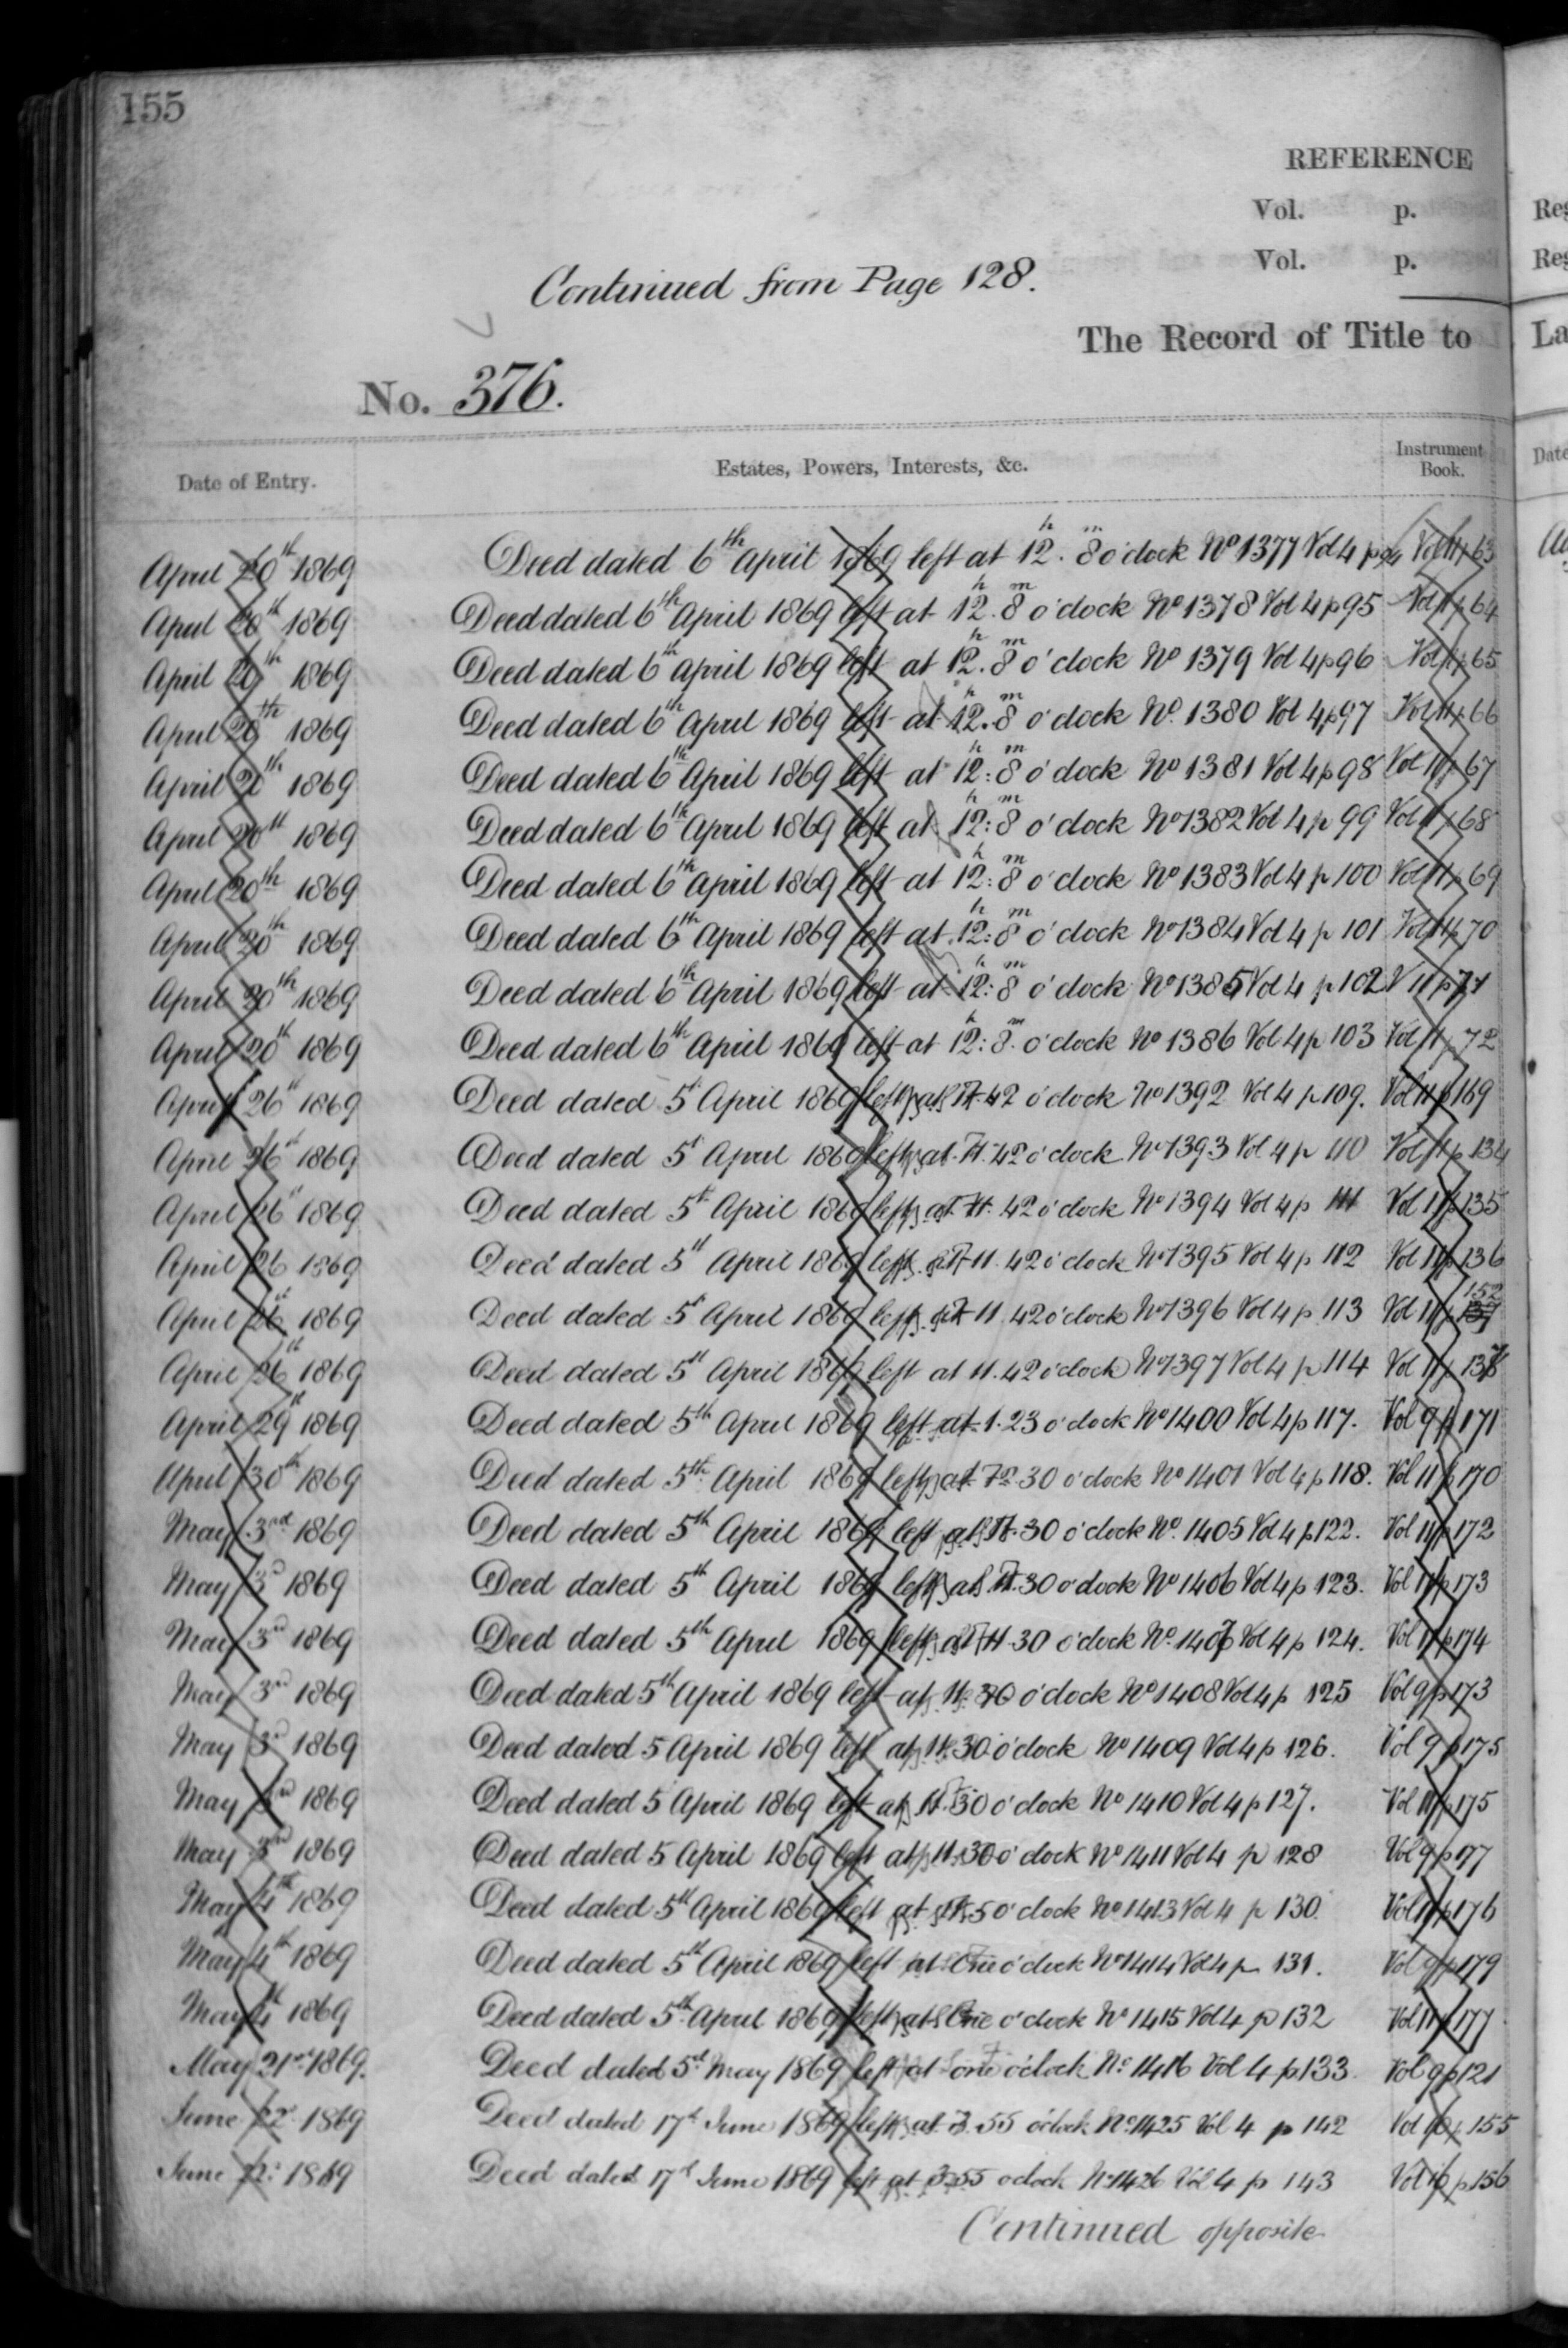 155
REFERENCE
Vol. p.
Vol. p.
Continued from Page 128.
The Record of Title to
No. 376.
Date of Entry. Estates, Powers, Interests, &c. Instrument Book.
April 20th 1869 Deed dated 6th April 1869 left at 12h. 8m o'clock No 1377 Vol 4 p 94 Vol 11 p 63
April 20th 1869 Deed dated 6th April 1869 left at 12h. 8m o'clock No 1378 Vol 4 p 95 Vol 11 p 64
April 20th 1869 Deed dated 6th April 1869 left at 12h. 8m o'clock No 1379 Vol 4 p 96 Vol 11 p 65
April 20th 1869 Deed dated 6th April 1869 left at 12h. 8m o'clock No. 1380 Vol 4 p 97 Vol 11 p 66
April 20th 1869 Deed dated 6th April 1869 left at 12h: 8m o'clock No 1381 Vol 4 p 98 Vol 11 p 67
April 20th 1869 Deed dated 6th April 1869 left at 12h: 8m o'clock No 1382 Vol 4 p 99 Vol 11 p 68
April 20th 1869 Deed dated 6th April 1869 left at 12h: 8m o'clock No 1383 Vol 4 p 100 Vol 11 p 69
April 20th 1869 Deed dated 6th April 1869 left at 12h: 8m o'clock No 1384 Vol 4 p 101 Vol 11 p 70
April 20th 1869 Deed dated 6th April 1869 left at 12h: 8m o'clock No 1385 Vol 4 p 102 V 11 p 71
April 20th 1869 Deed dated 6th April 1869 left at 12h: 8m o'clock No 1386 Vol 4 p 103 Vol 11 p 72
April 26th 1869 Deed dated 5th April 1869 left at 11.42 o'clock No 1392 Vol 4 p 109. Vol 11 p 169
April 26th 1869 Deed dated 5th April 1869 left at 11.42 o'clock No 1393 Vol 4 p 110 Vol 11 p 134
April 26th 1869 Deed dated 5th April 1869 left at 11.42 o'clock No 1394 Vol 4 p 111 Vol 11 p 135
April 26 1869 Deed dated 5th April 1869 left at 11.42 o'clock No 1395 Vol 4 p 112 Vol 11 p 136
April 26th 1869 Deed dated 5th April 1869 left at 11.42 o'clock No 1396 Vol 4 p 113 Vol 11 p 137 152
April 26th 1869 Deed dated 5th April 1869 left at 11.42 o'clock No 1397 Vol 4 p 114 Vol 11 p
April 29th 1869 Deed dated 5th April 1869 left at 1.23 o'clock No 1400 Vol 4 p 117. Vol 9 p 171
April 30th 1869 Deed dated 5th April 1869 left at 12.30 o'clock No 1401 Vol 4 p 118. Vol 11 p 170
May 3rd 1869 Deed dated 5th April 1869 left at 11.30 o'clock No. 1405 Vol 4 p 122. Vol 11 p 172
May 3rd 1869 Deed dated 5th April 1869 left at 11.30 o'clock No 1406 Vol 4 p 123. Vol 11 p 173
May 3rd 1869 Deed dated 5th April 1869 left at 11.30 o'clock No. 1407 Vol 4 p 124. Vol 11 p 174
May 3rd 1869 Deed dated 5th April 1869 left at 11.30 o'clock No 1408 Vol 4 p 125 Vol 9 p 173
May 3rd 1869 Deed dated 5 April 1869 left at 11.30 o'clock No 1409 Vol 4 p 126. Vol 9 p 175
May 3rd 1869 Deed dated 5 April 1869 left at 11.30 o'clock No 1410 Vol 4 p 127. Vol 11 p 175
May 3rd 1869 Deed dated 5 April 1869 left at 11.30 o'clock No 1411 Vol 4 p 128 Vol 9 p 177
May 4th 1869 Deed dated 5th April 1869 left at 5 o'clock No 1413 Vol 4 p 130. Vol 11 p 176
May 4th 1869 Deed dated 5th April 1869 left at One o'clock No 1414 Vol 4 p 131. Vol 9 p 179
May 4th 1869 Deed dated 5th April 1869 left at One o'clock No 1415 Vol 4 p 132 Vol 11 p 177
May 21st 1869. Deed dated 5th May 1869 left at one o'clock No 1416 Vol 4 p 133. Vol 9 p 121
June 22d 1869 Deed dated 17th June 1869 left at 3.55 o'clock No. 1425 Vol 4 p 142 Vol 10 p 155
June 22d 1869 Deed dated 17th June 1869 left at 3.55 o'clock No 1426 Vol 4 p 143 Vol 10 p 156
Continued opposite
Reg
Reg
La
Date